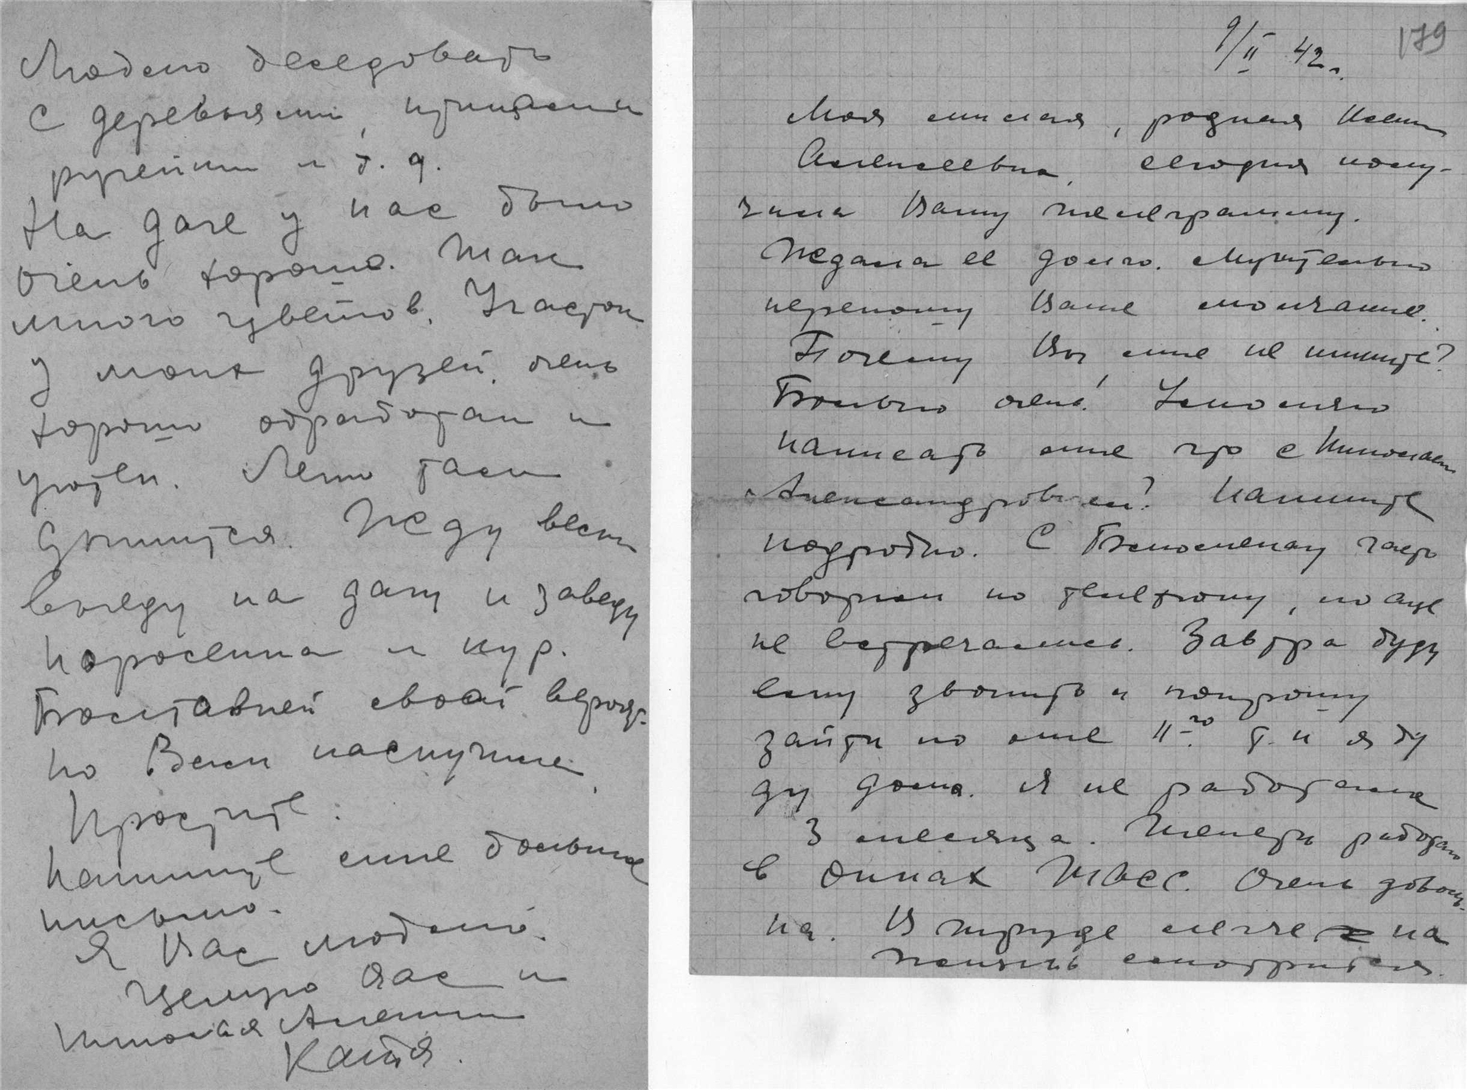 Люблю беседовать
с деревьями, птицами
ручейками и т. д.
На даче у нас было
очень хорошо. Так
много цветов. Участок
у моих друзей очень
хорошо обработан и
уютен. Лето там
дышится. Жду весны
выеду на дачу и заведу
поросенка и кур.
своей
но Вам наскучила
Простите.
Напишите мне большое
письмо.
Я Вас люблю.
Целую Вас и
Николая
Катя.
179
9/II 42 г.
Моя милая, родная Ксения
Алексеевна, сегодня полу-
чила Вашу телеграмму.
Ждала ее долго. Мучительно
переношу Ваше молчание.
Почему Вы мне не пишите?
Больно очень! Умоляю
написать мне что с Николаем
Александровичем? Напишите
подробно. С часто
говорили по телефону, но еще
не встречались. Завтра буду
ему звонить и попрошу
зайти ко мне 11-го т. к я бу
ду дома. Я не работала
3 месяца. Теперь работаю
в Окнах ТАСС. Очень доволь-
на. В труде легче на
жизнь смотрится.